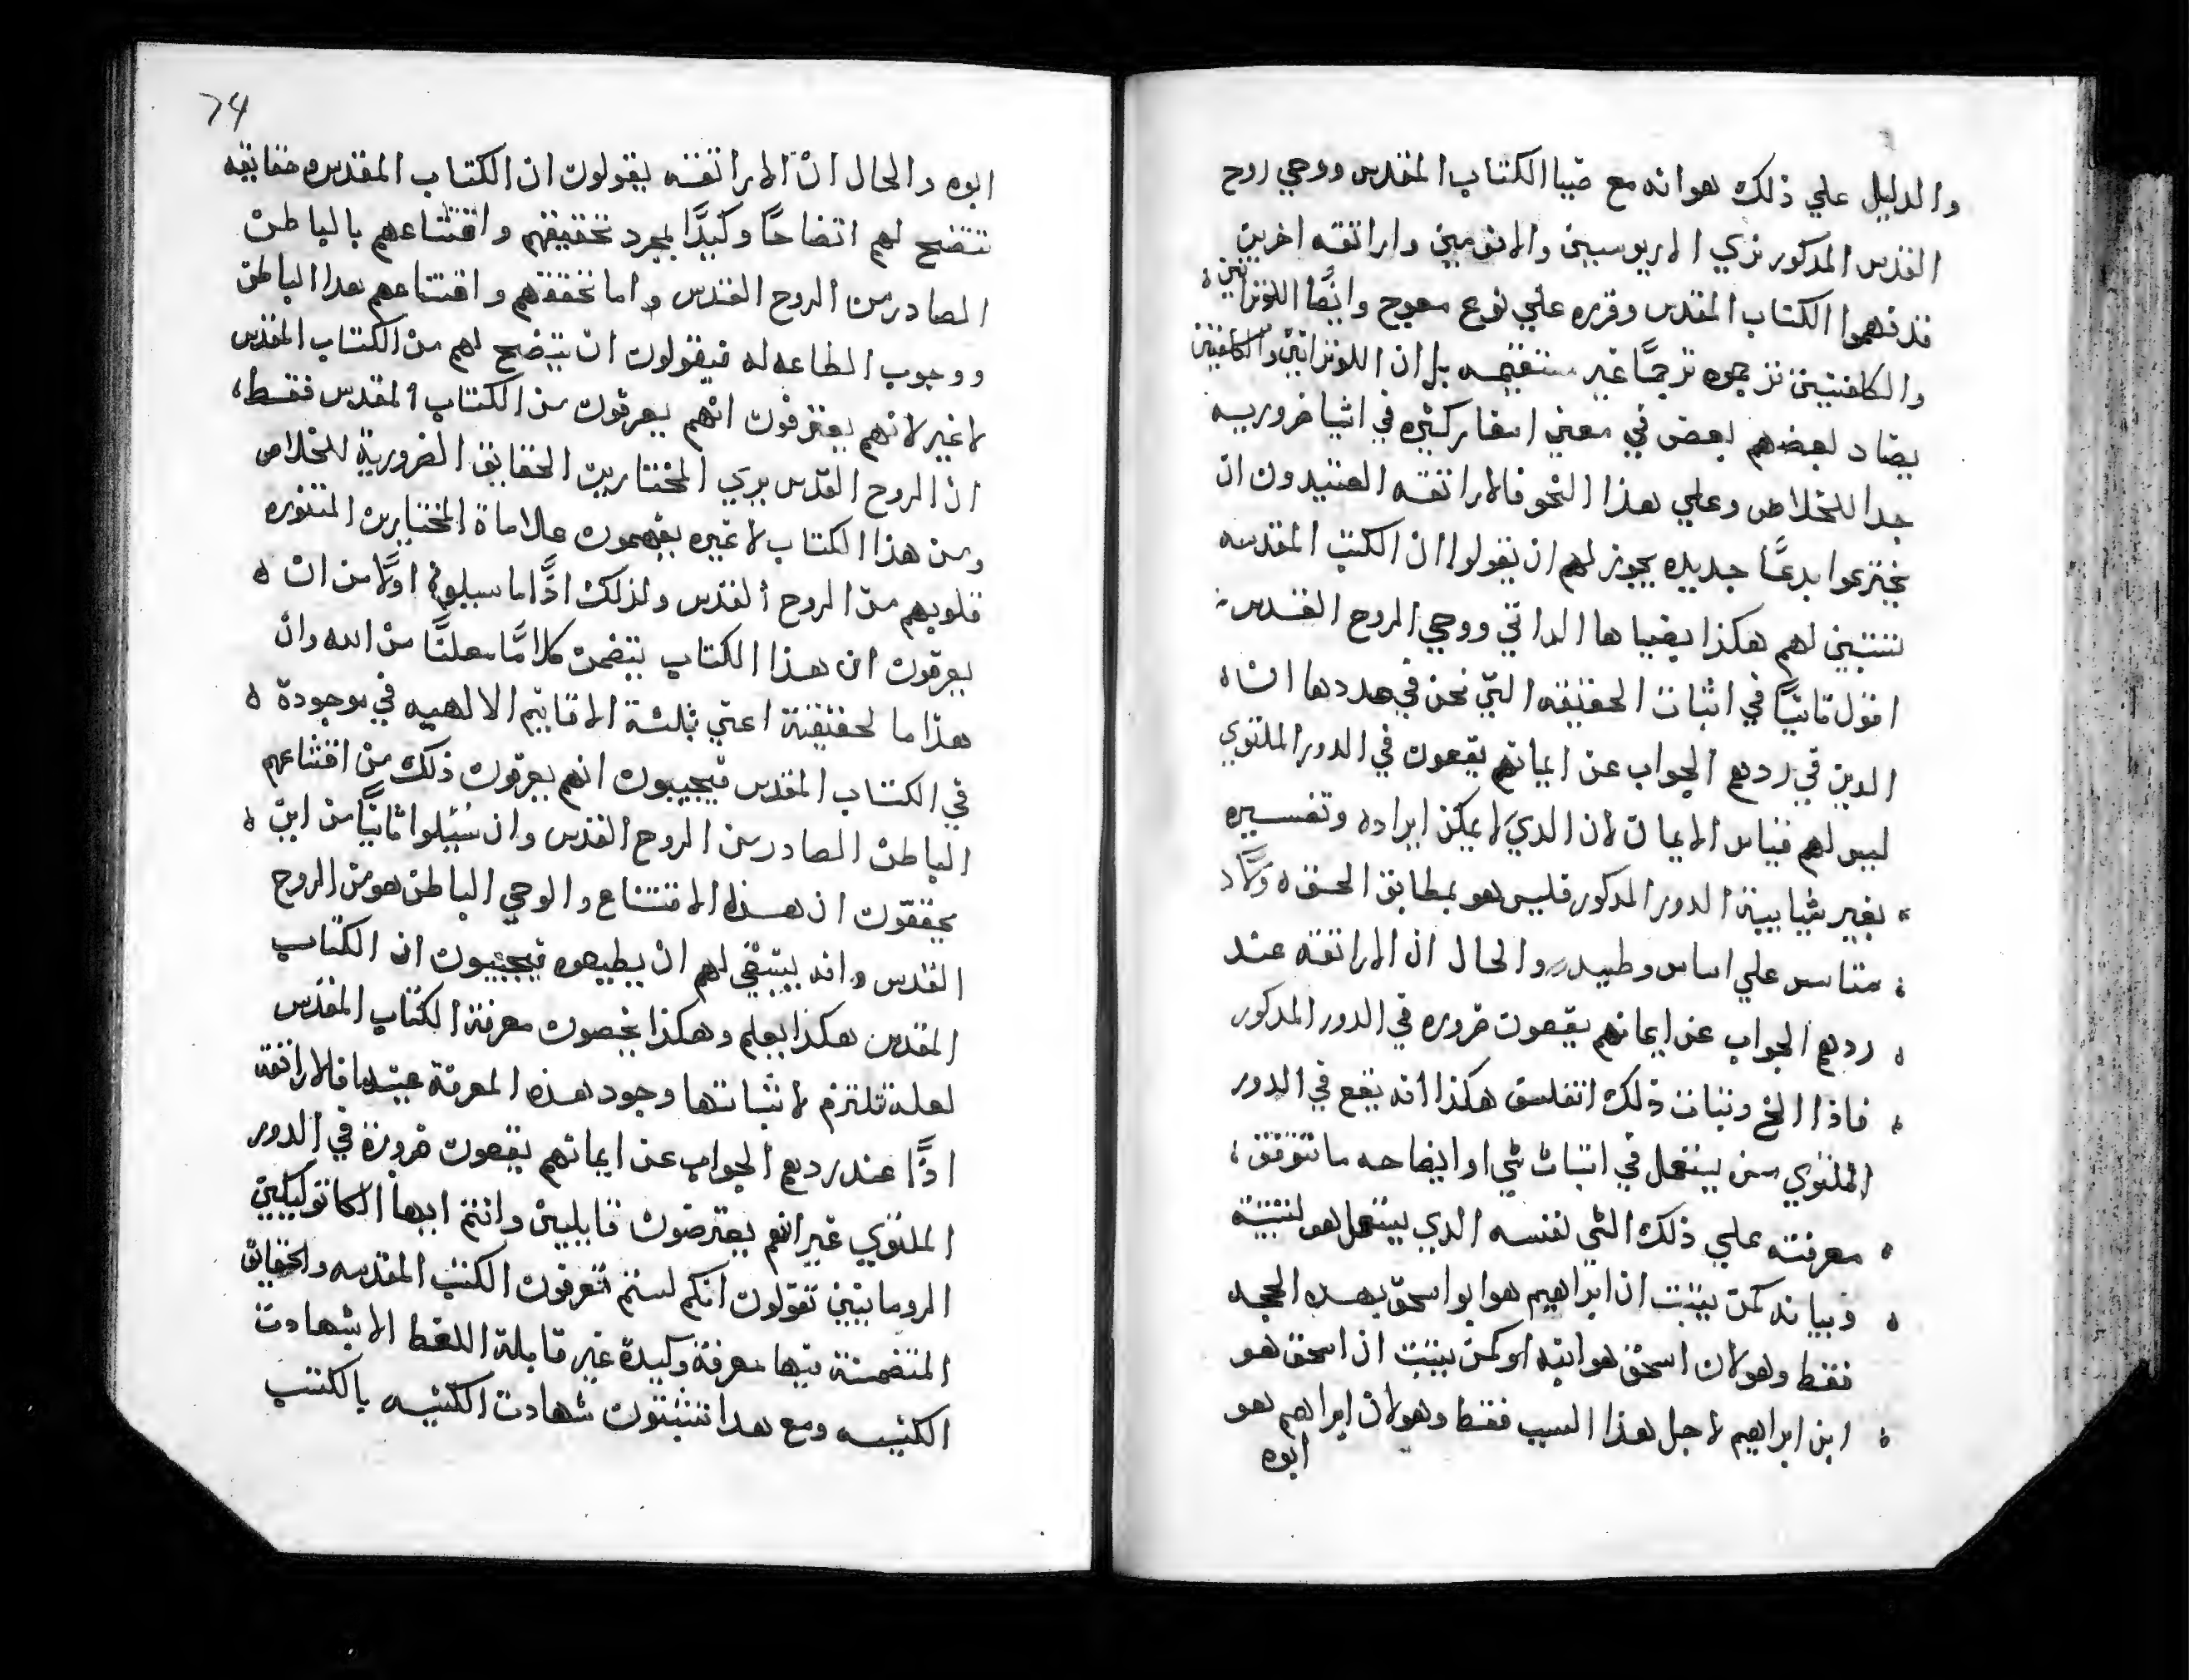 والدليل علي ذلك هو انه مع ضيا الكتاب المقدس ووحي روح
القدس المذكور نري الاريوسيين والانوميين واراتقه اخرين
قد فهموا الكتاب المقدس وقرره علي نوع معوج وايضًا اللوترانيين
والكلفنيين ترجموه ترجمًا غير مستقيمه بل ان اللوترانيين والكلفنين
يضاد بعضهم بعض في معني اسفار كثيره في اشيا ضروريه
جدا للخلاص وعلي هذا النحو فالاراتقه العتيدون ان
يخترعوا بدعًا جديده يجوز لهم ان يقولوا ان الكتب المقدسه
تتبين لهم هكذا بضياها الداتي ووحي الروح القدس
اقول تانيًا في اثبات الحقيقه التي نحن في صددها ان
الدين في ردهم الجواب عن ايمانهم يقعون في الدور الملتوي
ليس لهم قياس الايمان لان الدي لا يمكن ايراده وتفسيره
بغير شيابية الدور المدكور فليس هو بمطابق الحق ولا
متاسس علي اساس وطيد والحال ان الاراتقه عند
ردهم الجواب عن ايمانهم يقعون ضروره في الدور المدكور
فاذا الخ وتبات ذلك اتفلسق هكذا انه يقع في الدور
الملتوي من يستعمل في اتبات شي او ايضاحه ما تتوقف
معرفته علي ذلك الشي لنفسه الدي يستعمل هو لتتبيته
وبيانه كمن يتبت ان ابراهيم هو ابو اسحق بهده الحجه
فقط وهو لان اسحق هو ابنه او كمن يتبت ان اسحق هو
ابن ابراهيم لاجل هذا السبب فقط وهو لان ابراهيم هو
ابوه
74
ابوه والحال انّ الاراتقه يقولون ان الكتاب المقدس وحقايقه
تتضح لهم اتضاحًا وكيدًا بمجرد تحقيقهم واقتناعهم بالباطن
الصادر من الروح القدس واما تحققهم واقتناعهم هدا الباطن
ووجوب الطاعه له فيقولون ان يتضح لهم من الكتاب المقدس
لا غير لانهم يعترفون انهم يعرفون من الكتاب المقدس فقط
ان الروح القدس يري المختارين الحقايق الضرورية للخلاص
ومن هذا الكتاب لا غيره يفهمون علامات المختارين المتنوره
قلوبهم من الروح القدس ولذلك اذًا ما سيلوا اولًا من ان
يعرفون ان هذا الكتاب يتضمن كلامًا معلنًا من الله وان
هذا ما لحقيقة اعني بثلثة الاقانيم الالهيه في موجودة
في الكتاب المقدس فيجيبون انهم يعرفون ذلك من اقتناعهم
الباطن الصادر من الروح القدس وان سُيلوا ثانيًا من اين
يحققون ان هذه الاقتناع والوحي الباطن هو من الروح
القدس وانه ينبغي لهم ان يطيعوه فيجيبون ان الكتاب
المقدس هكذا يعلم وهكذا يخصون معرفة الكتاب المقدس
لعلة تلتزم لاثباتها وجود هذه المعرفة عينها فالاراتقة
اذًا عند ردهم الجواب عن ايمانهم يقعون ضرورة في الدور
الملتوي غير انهم يعترضون قايليين وانتم ايها الكاتوليكين
الرومانيين تقولون انكم لستم تعرفون الكتب المقدسه والحقايق
المتضمنة فيها معرفة وكيدة غير قابلة اللغط الا بشهادت
الكنيسه ومع هدا تتبتون شهادت الكنيسه بالكتب